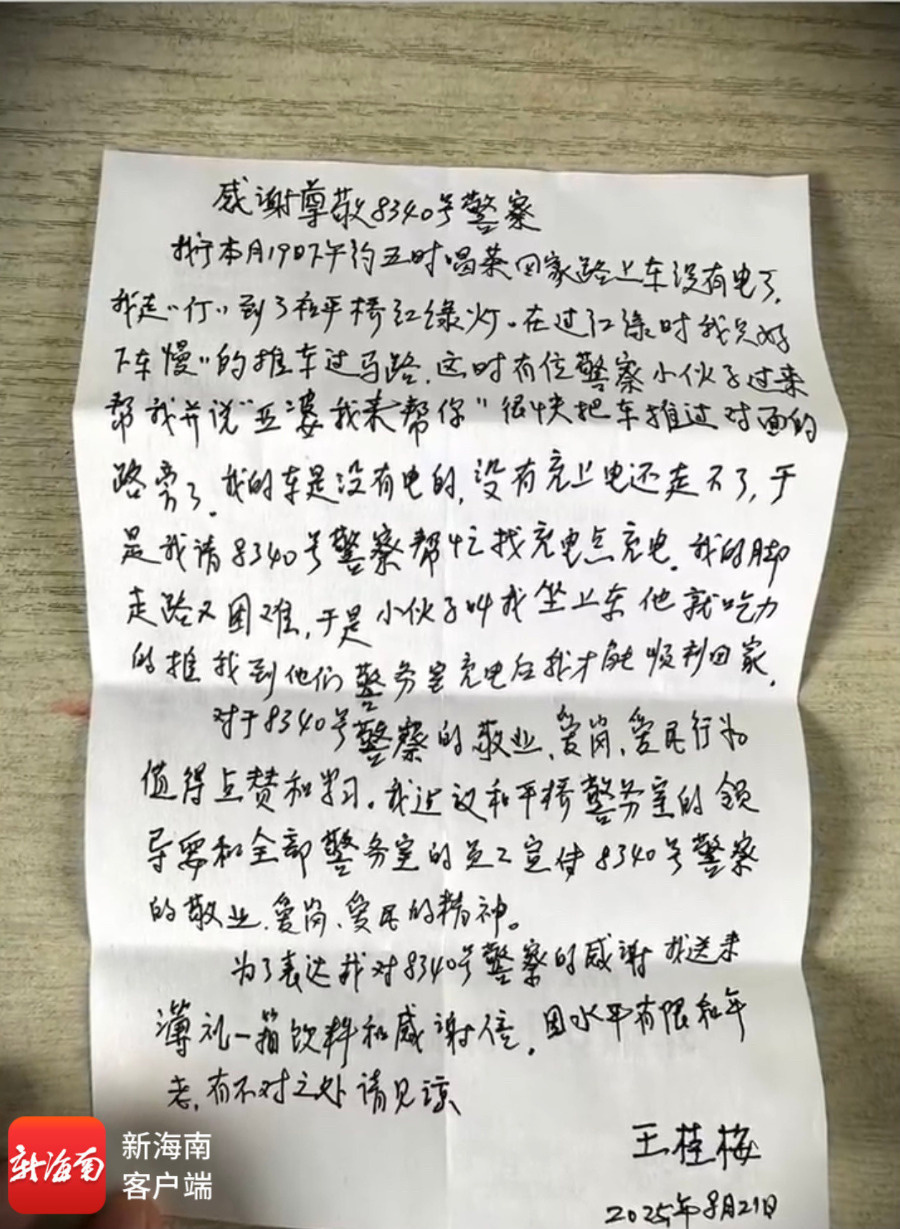 感谢尊敬8340号警察
我于本月19日下午约五时喝茶回家路上车没有电了,
我走"行"到了和平桥红绿灯。在过红绿时我只好
下车慢"的推车过马路,这时有位警察小伙子过来
帮我并说"亚婆我来帮你"很快把车推过对面的
路旁了。我的车是没有电的,没有充上电还走不了,于
是我请8340号警察帮忙找充电点充电。我的脚
走路又困难,于是小伙子叫我坐上车他就吃力
的推我到他们警务室充电后我才能顺利回家.
对于8340号警察的敬业、爱岗、爱民行为
值得点赞和学习。我建议和平桥警务室的领
导要和全部警务室的员工宣传8340号警察
的敬业、爱岗、爱民的精神。
为了表达我对8340号警察的感谢我送来
薄礼一箱饮料和感谢信,因水平有限和年
老,有不对之处请见谅
王桂梅
2025年8月21日
新海南
新海南
客户端